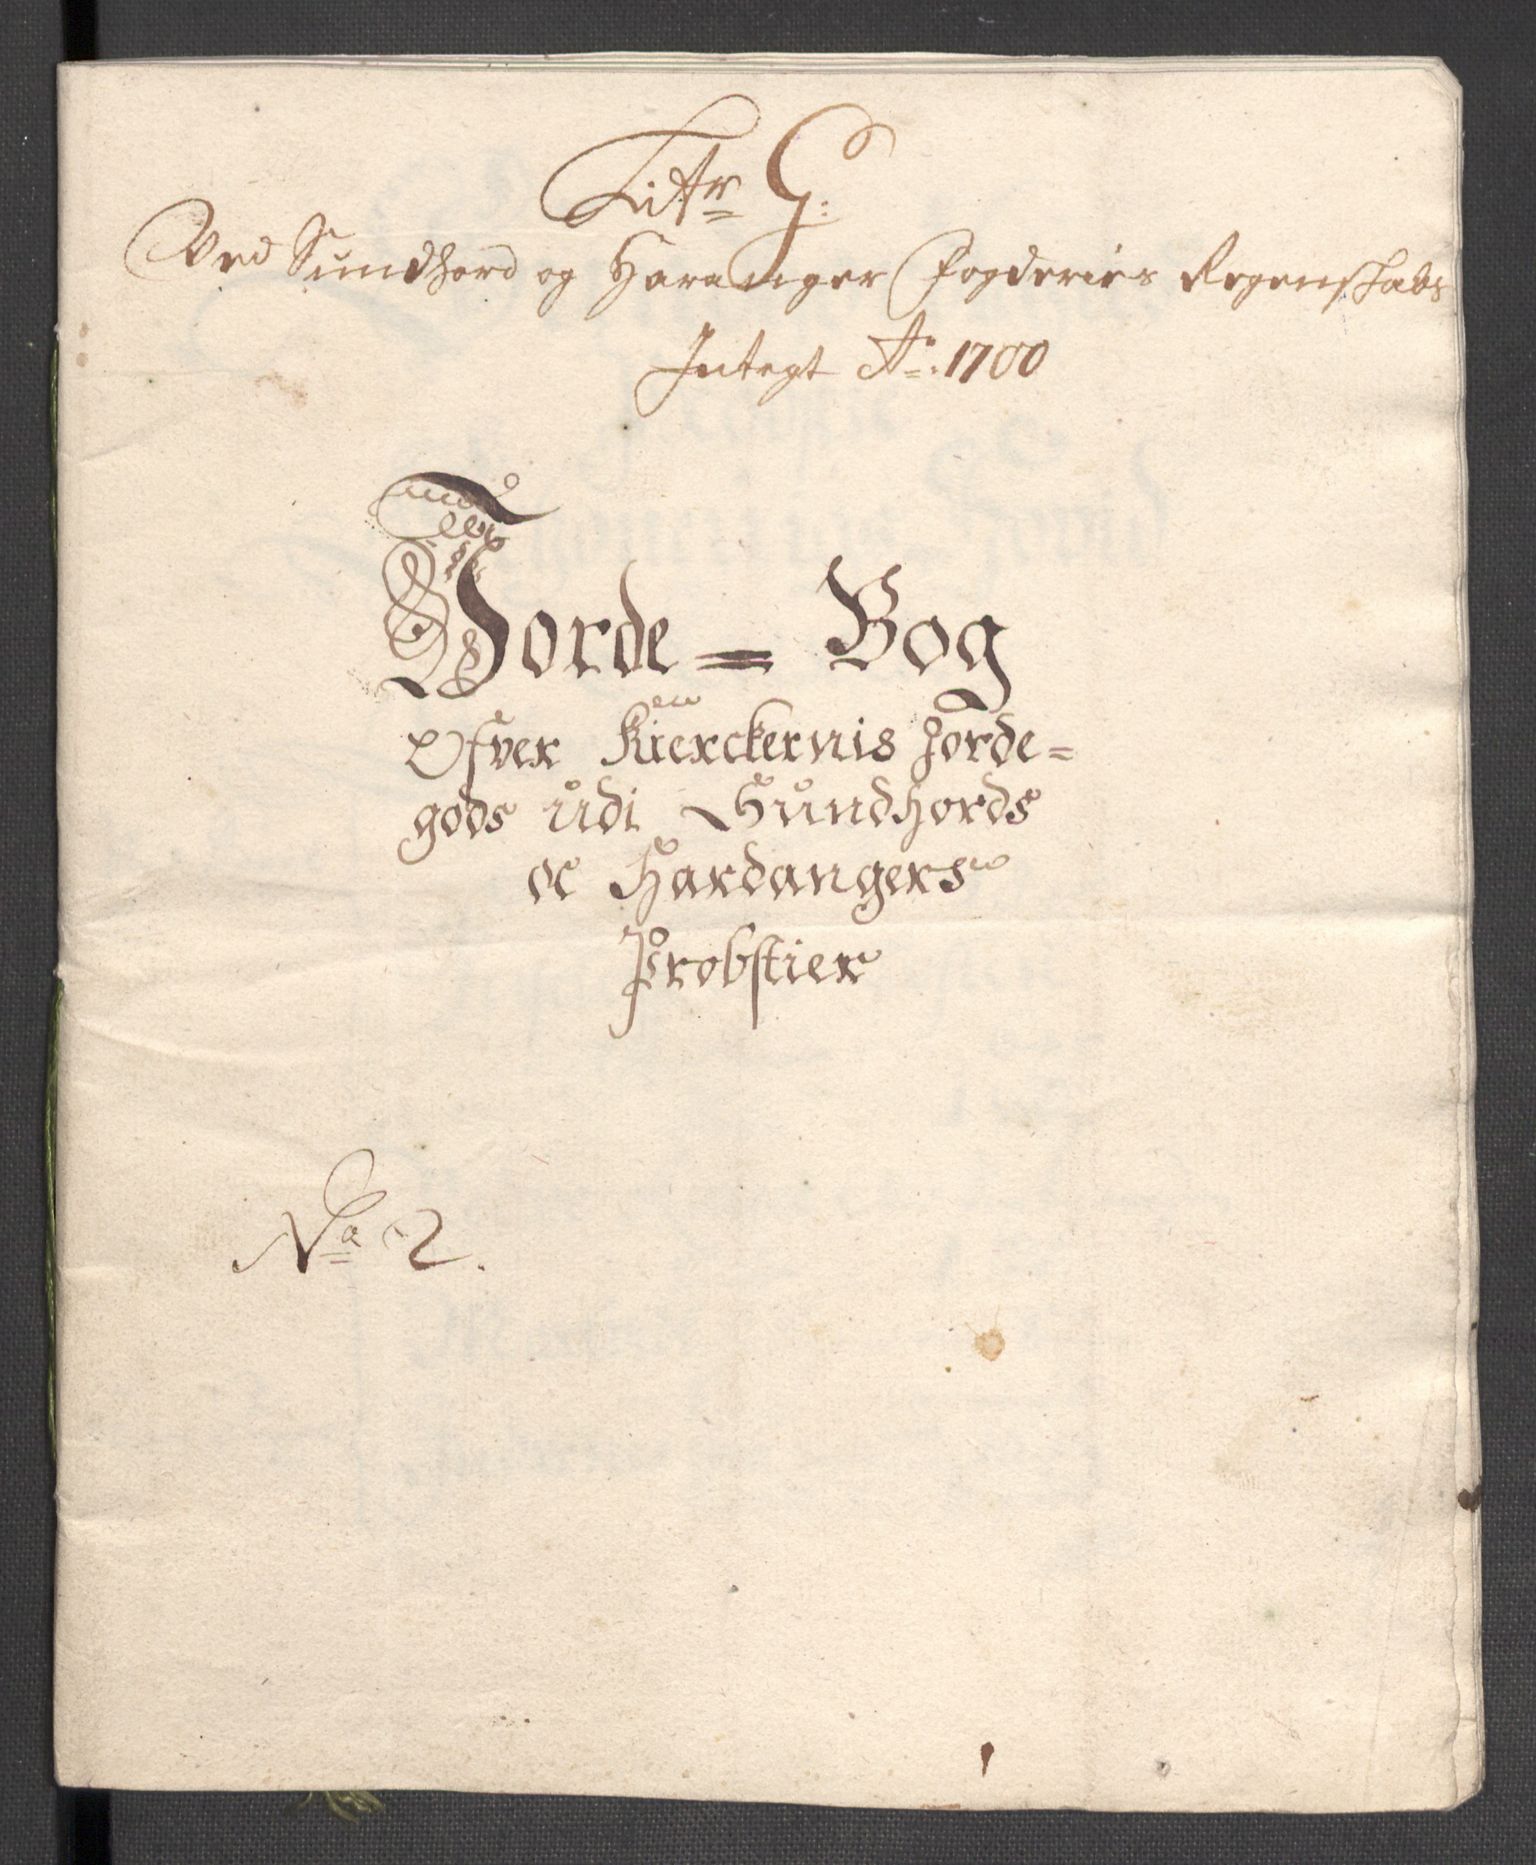 Litr G:
Ved Sundhord og Haranger Fogderies Regenskabs
Indtegt Ao: 1700
Jorde = Bog
Ofver Kierckernis Jorde=
gods udi Sundhords
oc Hardangers
Probstier
No 2.